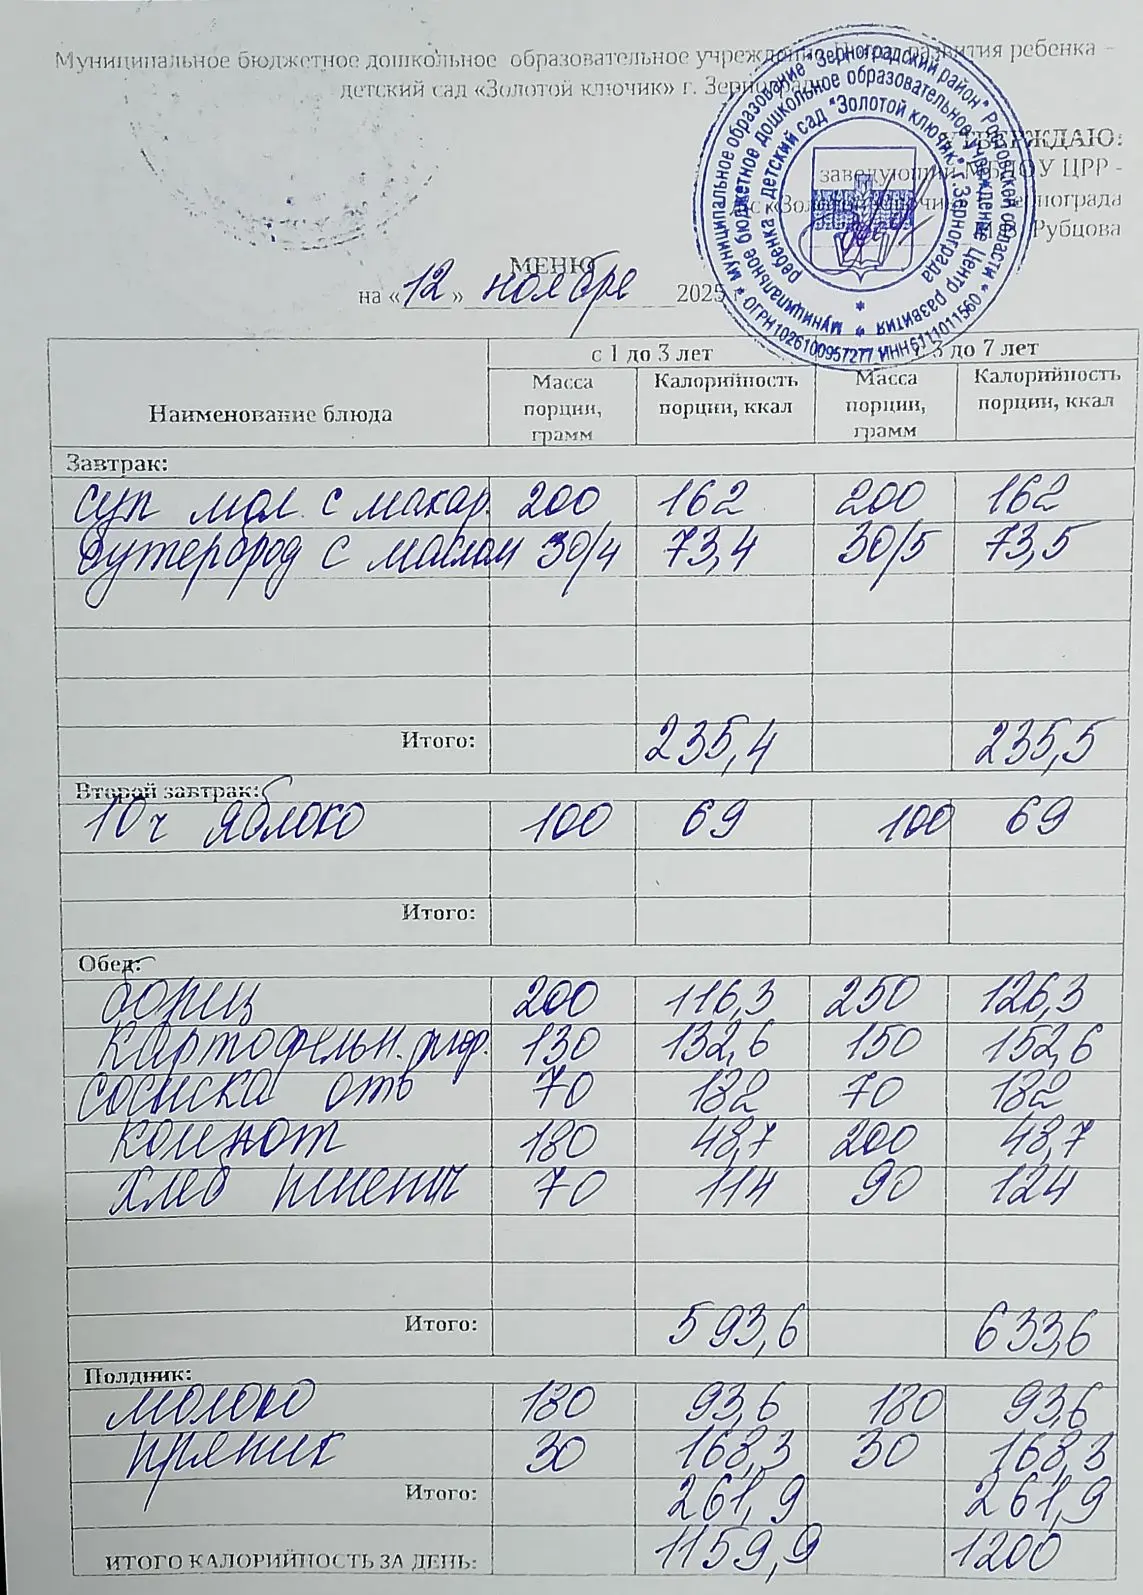 Муниципальное бюджетное дошкольное образовательное учреждение Центр развития ребенка –
детский сад «Золотой ключик» г. Зернограда
УТВЕРЖДАЮ:
заведующий МБДОУ ЦРР -
д/с «Золотой ключик» г. Зернограда
Рубцова
муниципальное образование "Зерноградский район" Ростовской области * ОГРН 1026100957277 ИНН 6111011560 *
муниципальное бюджетное дошкольное образовательное учреждение Центр развития
ребенка - детский сад "Золотой ключик" г. Зернограда
МЕНЮ
на «12» ноября 2025
Наименование блюда с 1 до 3 лет с 3 до 7 лет
Масса порции, грамм Калорийность порции, ккал Масса порции, грамм Калорийность порции, ккал
Завтрак:
суп мол. с макар. 200 162 200 162
бутерброд с маслом 30/4 73,4 30/5 73,5
Итого: 235,4 235,5
Второй завтрак:
10ч яблоко 100 69 100 69
Итого:
Обед:
борщ 200 116,3 250 126,3
картофельн. пюр. 130 132,6 150 152,6
сосиска отв 70 182 70 182
компот 180 48,7 200 48,7
хлеб пшенич 70 114 90 124
Итого: 593,6 633,6
Полдник:
молоко 180 93,6 180 93,6
пряник 30 168,3 30 168,3
Итого: 261,9 261,9
ИТОГО КАЛОРИЙНОСТЬ ЗА ДЕНЬ: 1159,9 1200